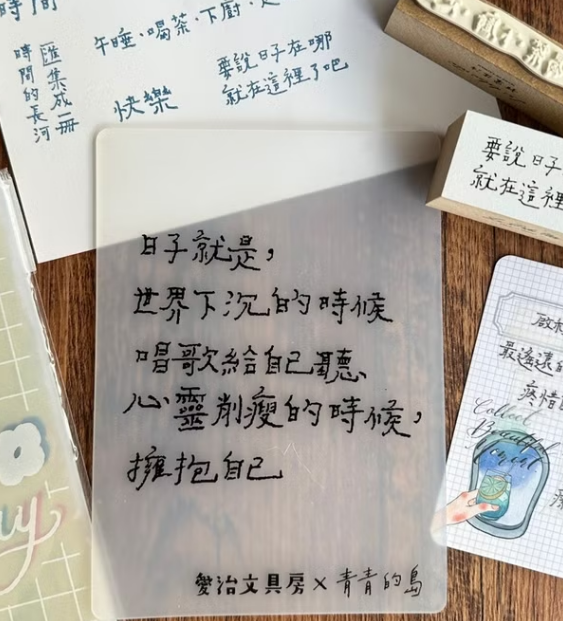 時間
午睡、喝茶、下廚、
匯集成一冊
時間的長河
快樂
要說日子在哪
就在這裡了吧
要說日子
就在這裡
日子就是，
世界下沉的時候
唱歌給自己聽、
心靈削瘦的時候，
擁抱自己
愛治文具房×青青的島
最遙遠的
疼惜
Collect
Beautiful